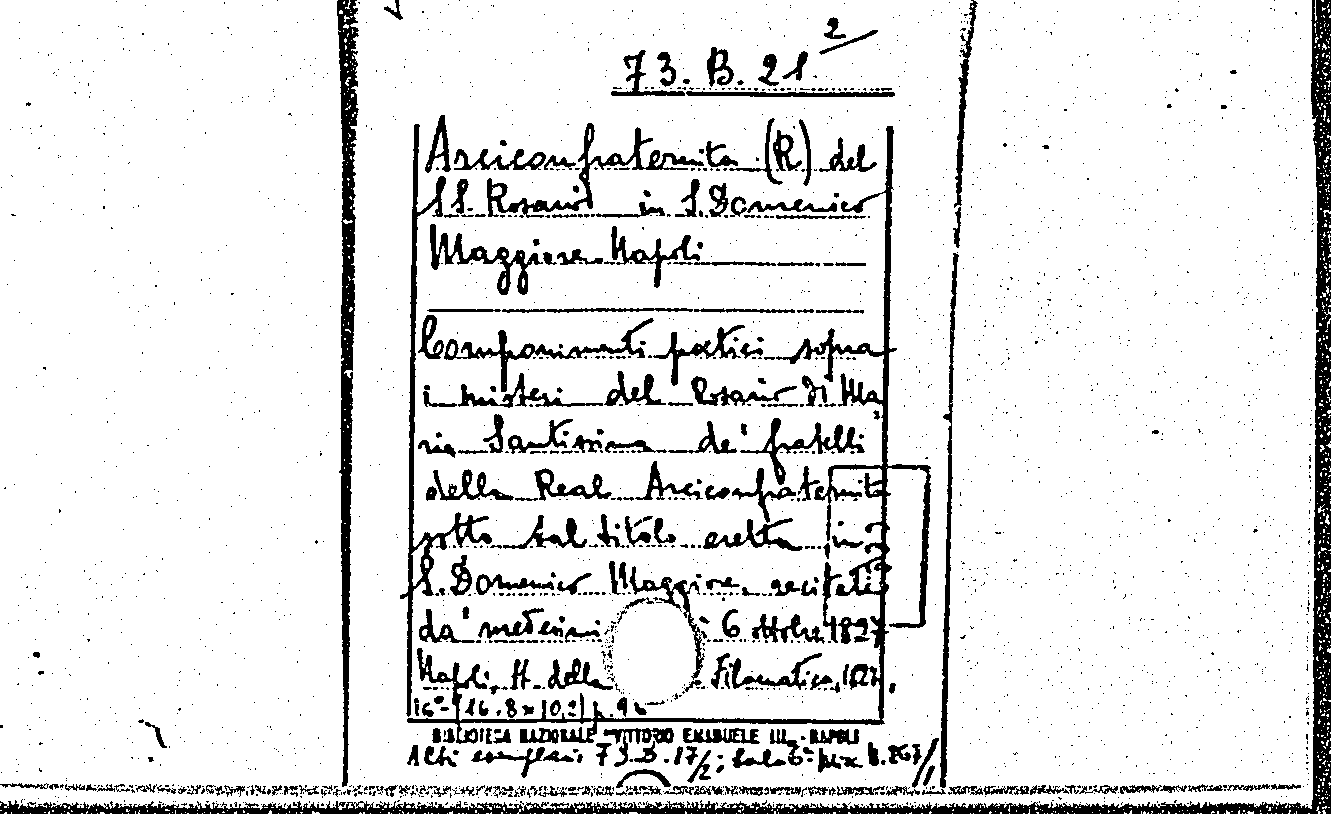 73.B.21 2/
Arciconfraternita (R) del
SS. Rosario in S. Domenico
Maggiore. Napoli
Componimenti poetici sopra
i misteri del Rosario di Ma
ria Santissima de' fratelli
della Real Arciconfraternita
sotto tal titolo eretta in
S. Domenico Maggiore, recitati
da' medesimi 6 ottobre 1827
Napoli, tt. della Filomatica, 1827,
16°- (16.8 x 10,2) p. 96
BIBLIOTECA NAZIONALE "VITTORIO EMANUELE III" - NAPOLI
Altri esemplari 73.B.17/2; Sala 6ª